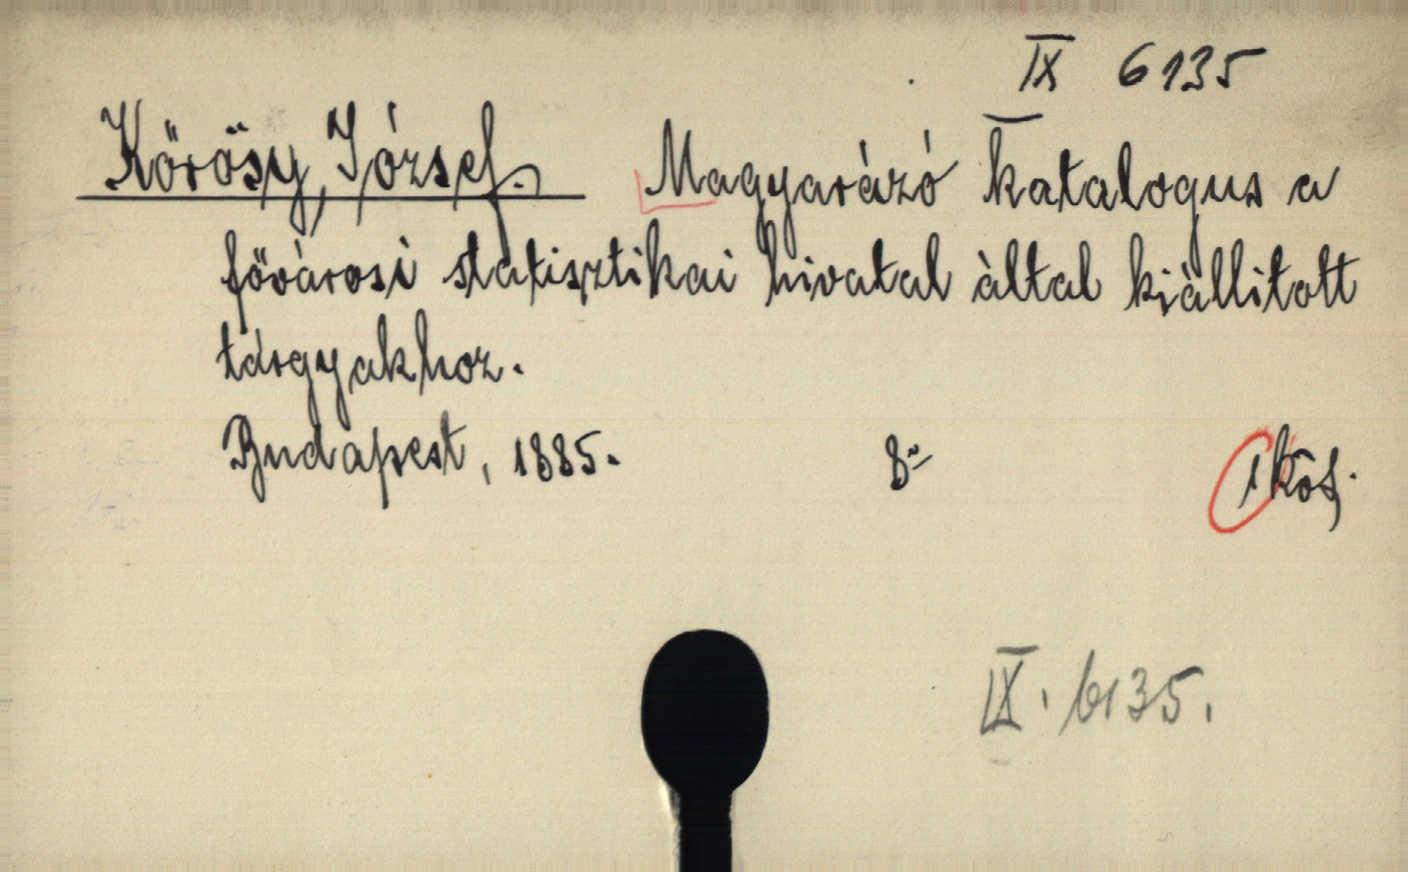 IX 6135
Kőrösy, József. Magyarázó katalogus a
fővárosi statisztikai hivatal által kiállitott
tárgyakhoz.
Budapest, 1885. 8° 1 köt.
IX. 6135.